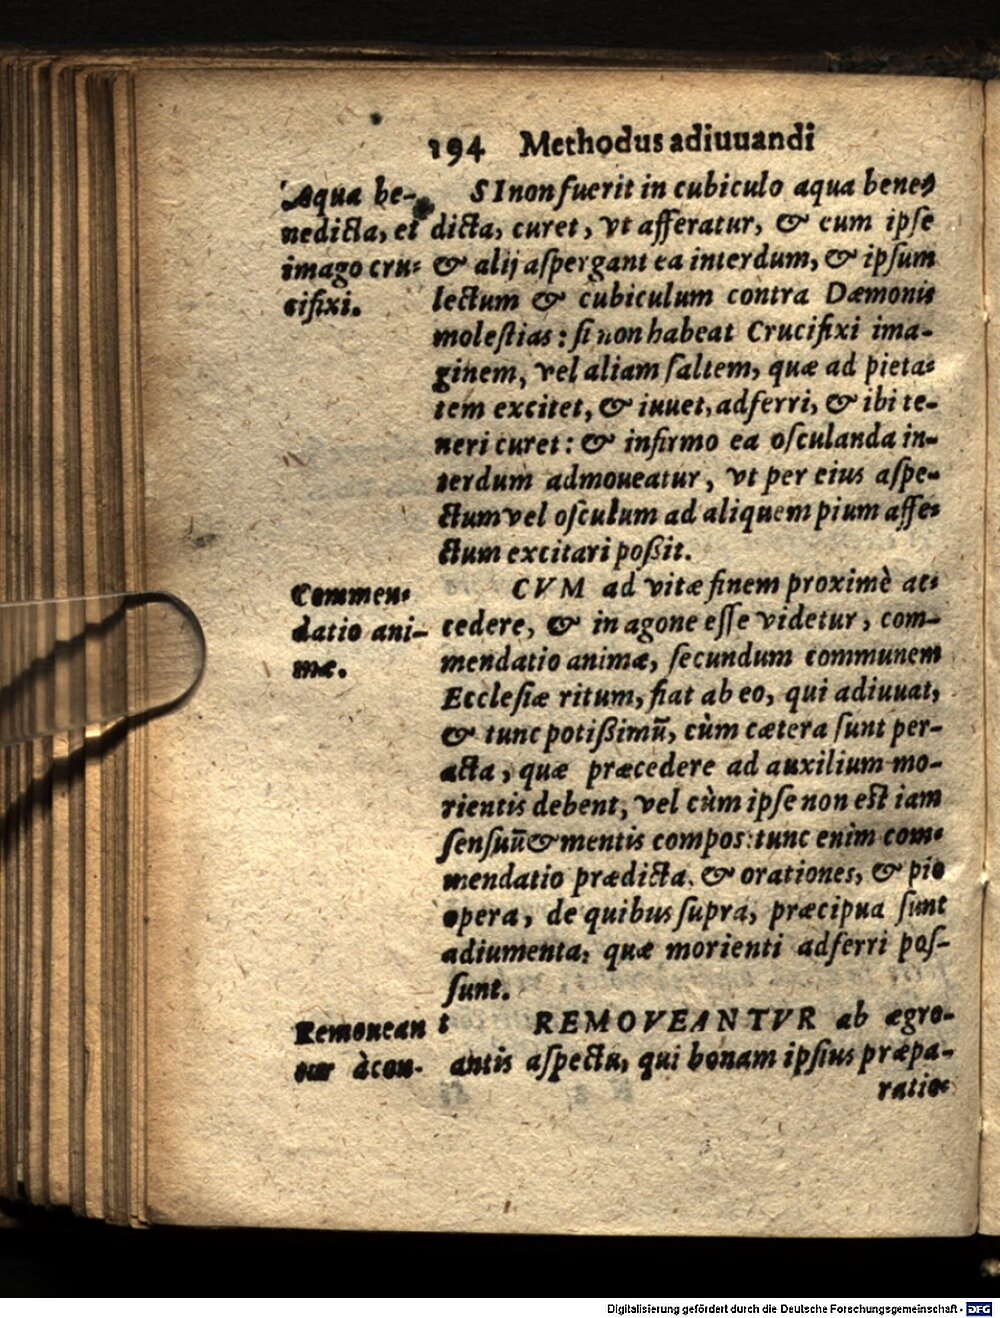 194 Methodus adiuuandi
Aqua be-
nedicta, et
imago cru-
cifixi.
SI non fuerit in cubiculo aqua bene-
dicta, curet, vt afferatur, & cum ipse
& alij aſpergant ea interdum, & ipſum
lectum & cubiculum contra Dæmonis
moleſtias: ſi non habeat Crucifixi ima-
ginem, vel aliam ſaltem, quæ ad pieta-
tem excitet, & iuuet, adferri, & ibi te-
neri curet: & infirmo ea oſculanda in-
terdum admoueatur, vt per eius aſpe-
ctum vel oſculum ad aliquem pium affe-
ctum excitari poßit.
Commen-
datio ani-
mæ.
CVM ad vitæ finem proximè ac-
cedere, & in agone eſſe videtur, com-
mendatio animæ, ſecundum communem
Eccleſiæ ritum, fiat ab eo, qui adiuuat,
& tunc potißimū, cùm cætera ſunt per-
acta, quæ præcedere ad auxilium mo-
rientis debent, vel cùm ipſe non eſt iam
ſenſuū & mentis compos: tunc enim com-
mendatio prædicta, & orationes, & pio
opera, de quibus ſupra, præcipua ſunt
adiumenta, quæ morienti adferri poſ-
ſunt.
Remouean
tur à con-
REMOVEANTVR ab ægro-
tantis aſpectu, qui bonam ipſius præpa-
ratio-
Digitalisierung gefördert durch die Deutsche Forschungsgemeinschaft - DFG